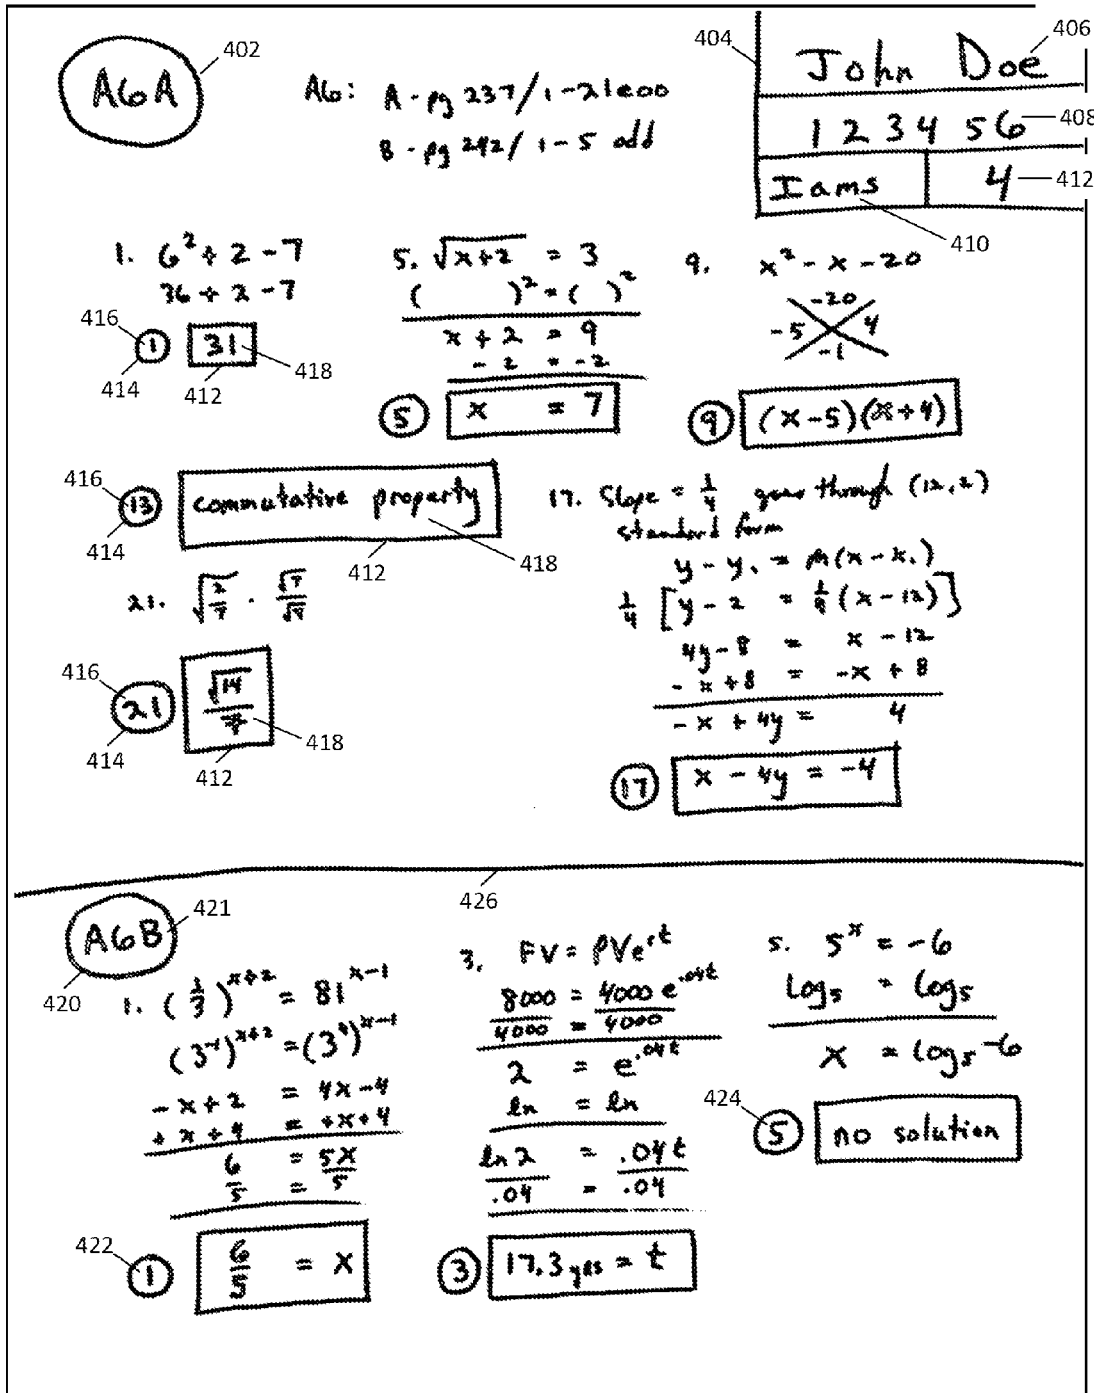 402
A6A
A6: A - pg 237 / 1-21eoo
B - pg 242 / 1-5 odd
404
406
John Doe
123456
408
Iams
4
412
410
1. 6² + 2 - 7
36 + 2 - 7
416
1
31
414
412
418
5. √x+2 = 3
( )² = ( )²
x + 2 = 9
- 2 = -2
5
x = 7
9. x² - x - 20
-20
-5 4
-1
9
(x-5)(x+4)
416
13
commutative property
414
412
418
21. √2/7 · √7/√7
416
21
√14/7
414
412
418
17. Slope = 1/4 goes through (12,2)
standard form
y - y₁ = m(x - x₁)
1/4 [y - 2 = 1/4 (x - 12)]
4y - 8 = x - 12
- x + 8 = -x + 8
- x + 4y = 4
17
x - 4y = -4
426
421
A6B
420
1. (1/3)^x+2 = 81^x-1
(3^-1)^x+2 = (3^4)^x-1
- x + 2 = 4x - 4
+ x + 4 = +x + 4
6/5 = 5x/5
422
1
6/5 = x
3. FV = PVe^rt
8000 = 4000 e^.04t
4000 = 4000
2 = e^.04t
ln = ln
ln 2 = .04t
.04 = .04
3
17.3 yrs = t
5. 5^x = -6
Log₅ = Log₅
x = log₅ -6
424
5
no solution